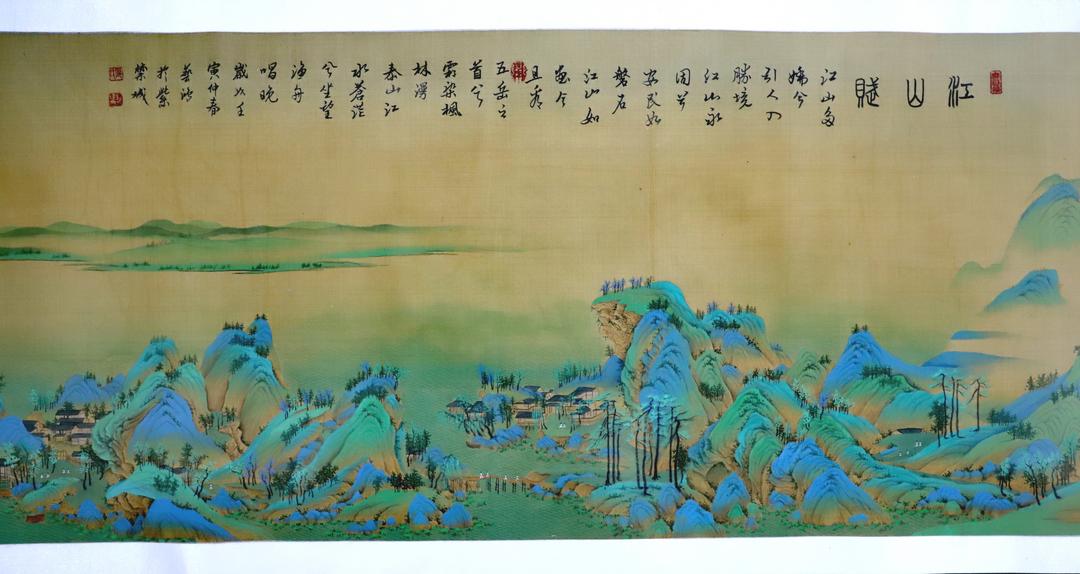 江山賦
江山多
嬌兮
引人入
勝境
江山永
固兮
安民如
磐石
江山如
畫兮
且看
五岳之
首兮
霜染楓
林漫
泰山江
水蒼茫
兮坐望
渔舟
唱晚
歲次壬
寅仲春
於紫
禁城